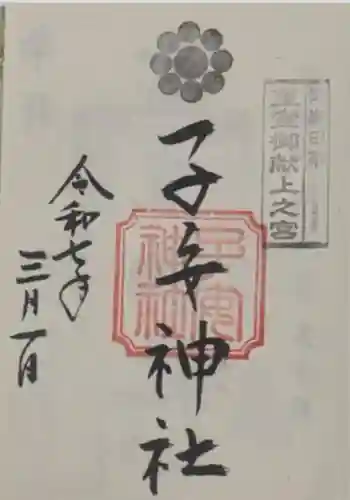 皇室御献上之宮
子安神社
子安
神社
令和七年
三月一日